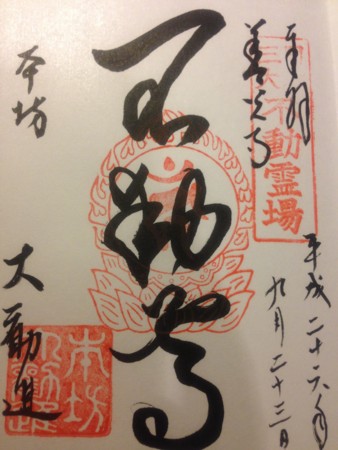 奉拝
善光寺
不動霊場
平成二十六年
九月二十三日
不動尊
本坊
大勧進
本坊